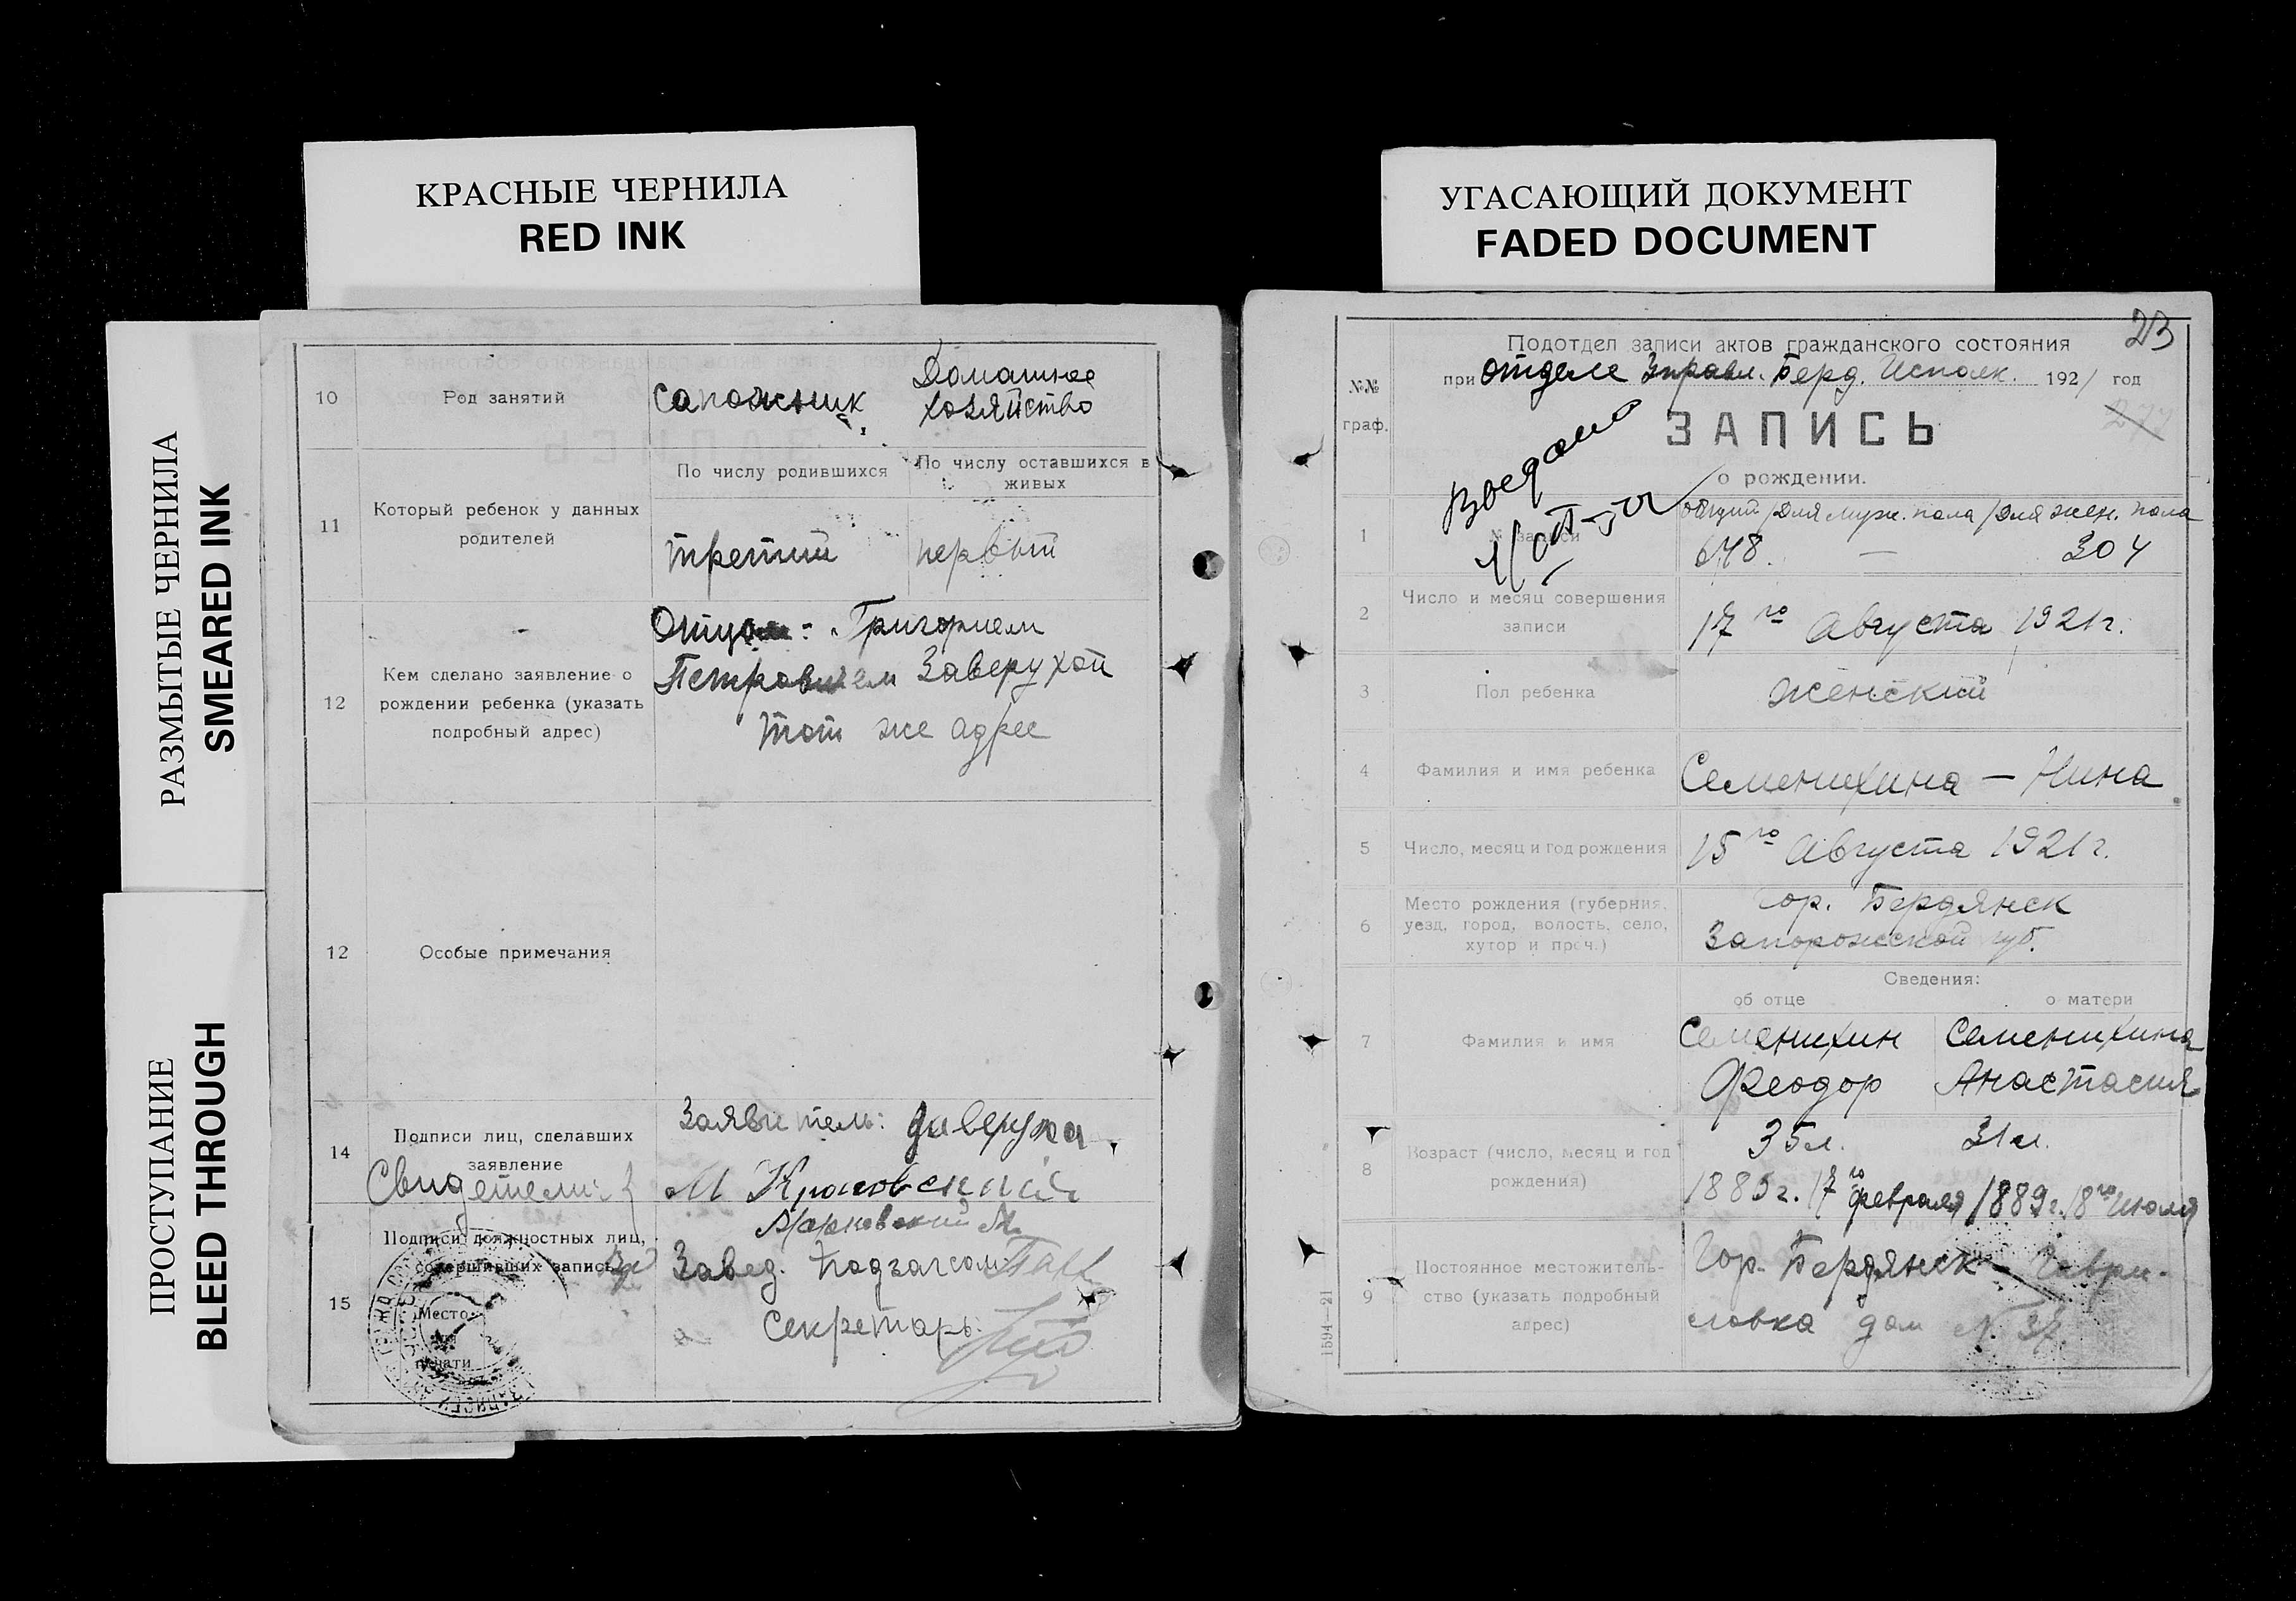 КРАСНЫЕ ЧЕРНИЛА
RED INK
УГАСАЮЩИЙ ДОКУМЕНТ
FADED DOCUMENT
РАЗМЫТЫЕ ЧЕРНИЛА
SMEARED INK
ПРОСТУПАНИЕ
BLEED THROUGH
10
Род занятий
сапожник
Домашнее
хозяйство
11
Который ребенок у данных
родителей
По числу родившихся
По числу оставшихся в
живых
третий
первый
12
Кем сделано заявление о
рождении ребенка (указать
подробный адрес)
Отцом: Григорием
Петровичем Заверухой
тот же адрес
12
Особые примечания
14
Подписи лиц, сделавших
заявление
Свидетели:
Заявитель: Заверуха
М
Марковский
15
Подписи должностных лиц,
совершивших запись
Место
печати
Завед. Подзагсом
Секретарь:
23
№№
граф.
Подотдел записи актов гражданского состояния
при отделе Управл. Берд. Исполк. 1921 год
277
ЗАПИСЬ
о рождении.
1
№ записи
общий / для муж. пола / для жен. пола
648. — 304
2
Число и месяц совершения
записи
17го Августа 1921г.
3
Пол ребенка
женский
4
Фамилия и имя ребенка
Семенихина — Нина
5
Число, месяц и год рождения
15го Августа 1921г.
6
Место рождения (губерния,
уезд, город, волость, село,
хутор и проч.)
Гор. Бердянск
Запорожской губ.
Сведения:
об отце
о матери
7
Фамилия и имя
Семенихин
Феодор
Семенихина
Анастасия
8
Возраст (число, месяц и год
рождения)
35л.
1885г. 17го февраля
31л.
1889г. 18го Июля
9
Постоянное местожитель-
ство (указать подробный
адрес)
Гор. Бердянск Гаври-
ловка дом №. 37.
1594—21